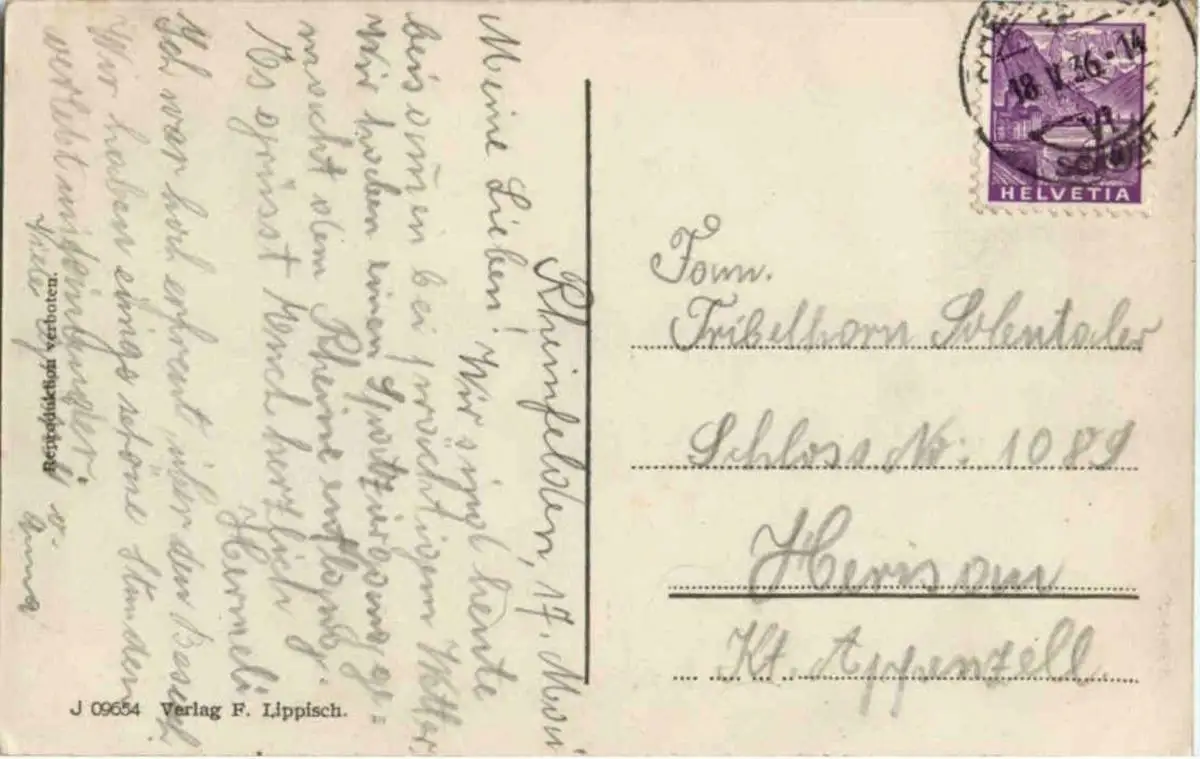 Rheinfelden, 17. Mai
Meine Lieben! Wir sind heute
beisamen bei prächtigem Wetter
Wir haben einen Spatziergang ge=
macht dem Rheine entlang.
Es grüsst Euch herzlich
Hermeli
Ich war hoch erfreut über den Besuch
Wir haben einige schöne Stunden
verlebt
Viele
Anna
Reproduktion verboten.
J 09654 Verlag F. Lippisch.
18. V. 36-14
HELVETIA
Fam.
Tribelhorn Solentaler
Schloss No: 1089
Herisau
Kt. Appenzell.